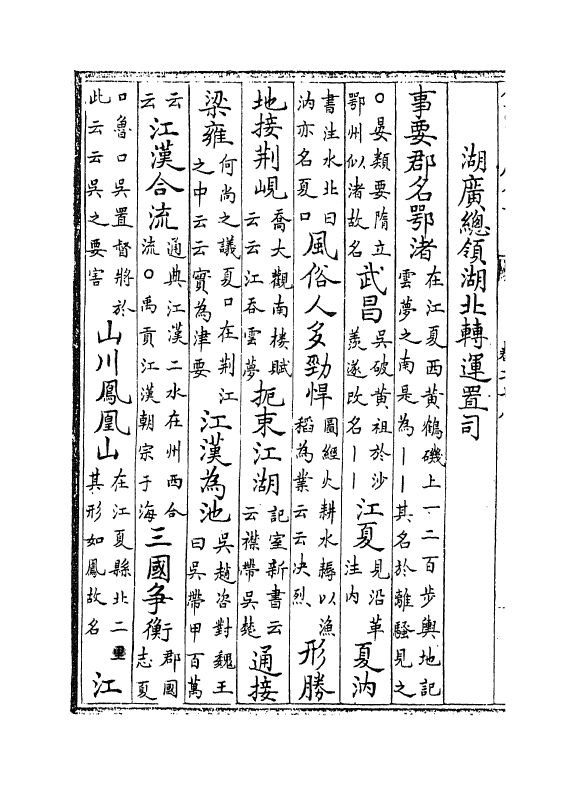 湖廣總領湖北轉運置司
事要郡名鄂渚在江夏西黄鶴磯上一二百步輿地記雲夢之南是為——其名於離騷見之
○晏類要隋立鄂州似渚故名武昌吳破黄祖於沙羨遂改名——江夏見沿革注内夏汭
書注水北曰汭亦名夏口風俗人多勁悍圖經火耕水耨以漁稻為業云云决烈形勝
地接荆峴喬大觀南楼賦云云江吞雲夢扼束江湖記室新書云云襟帶吳楚通接
梁雍何尚之議夏口在荆江之中云云實為津要江漢為池吳趙咨對魏王曰吳帶甲百萬
云云江漢合流通典江漢二水在州西合流○禹貢江漢朝宗于海三國争衡郡國志夏
口魯口吳置督將於此云云吳之要害山川鳳凰山在江夏縣北二里其形如鳳故名江